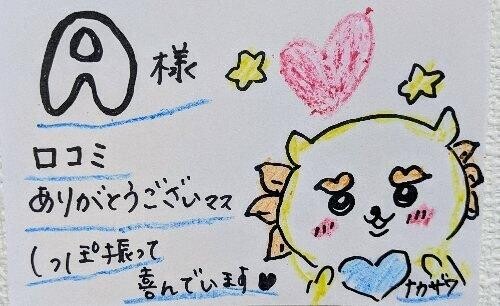 A 様
口コミ
ありがとうございマス
しっぽ振って
喜んでいます♥
ナカザワ